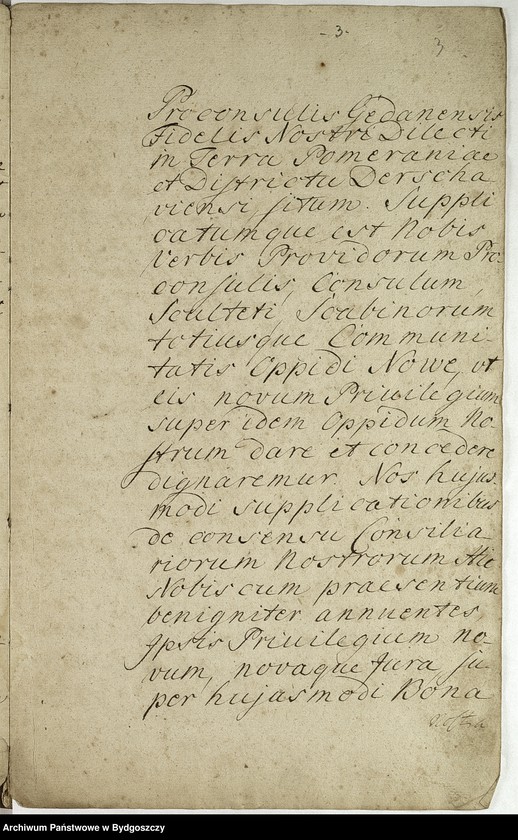 -3.
3
Proconsulis Gedanensis
Fidelis Nostri Dilecti
in Terra Pomeraniae
et Districtu Derscha
viensi situm. Suppli
catumque est Nobis
Verbis Providorum Pro
consulis, Consulum,
Sculteti, Scabinorum
totiusque Communi-
tatis Oppidi Nowe, ut
eis novum Privilegium
super idem Oppidum No-
strum dare et concedere
dignaremur. Nos hujus
modi supplicationibus
de consensu Consilia
riorum Nostrorum Hic
Nobiscum praesentium
benigniter annuentes,
Ipsis Privilegium no-
vum, novaque Jura su-
per hujasmodi Bona
Archiwum Państwowe w Bydgoszczy